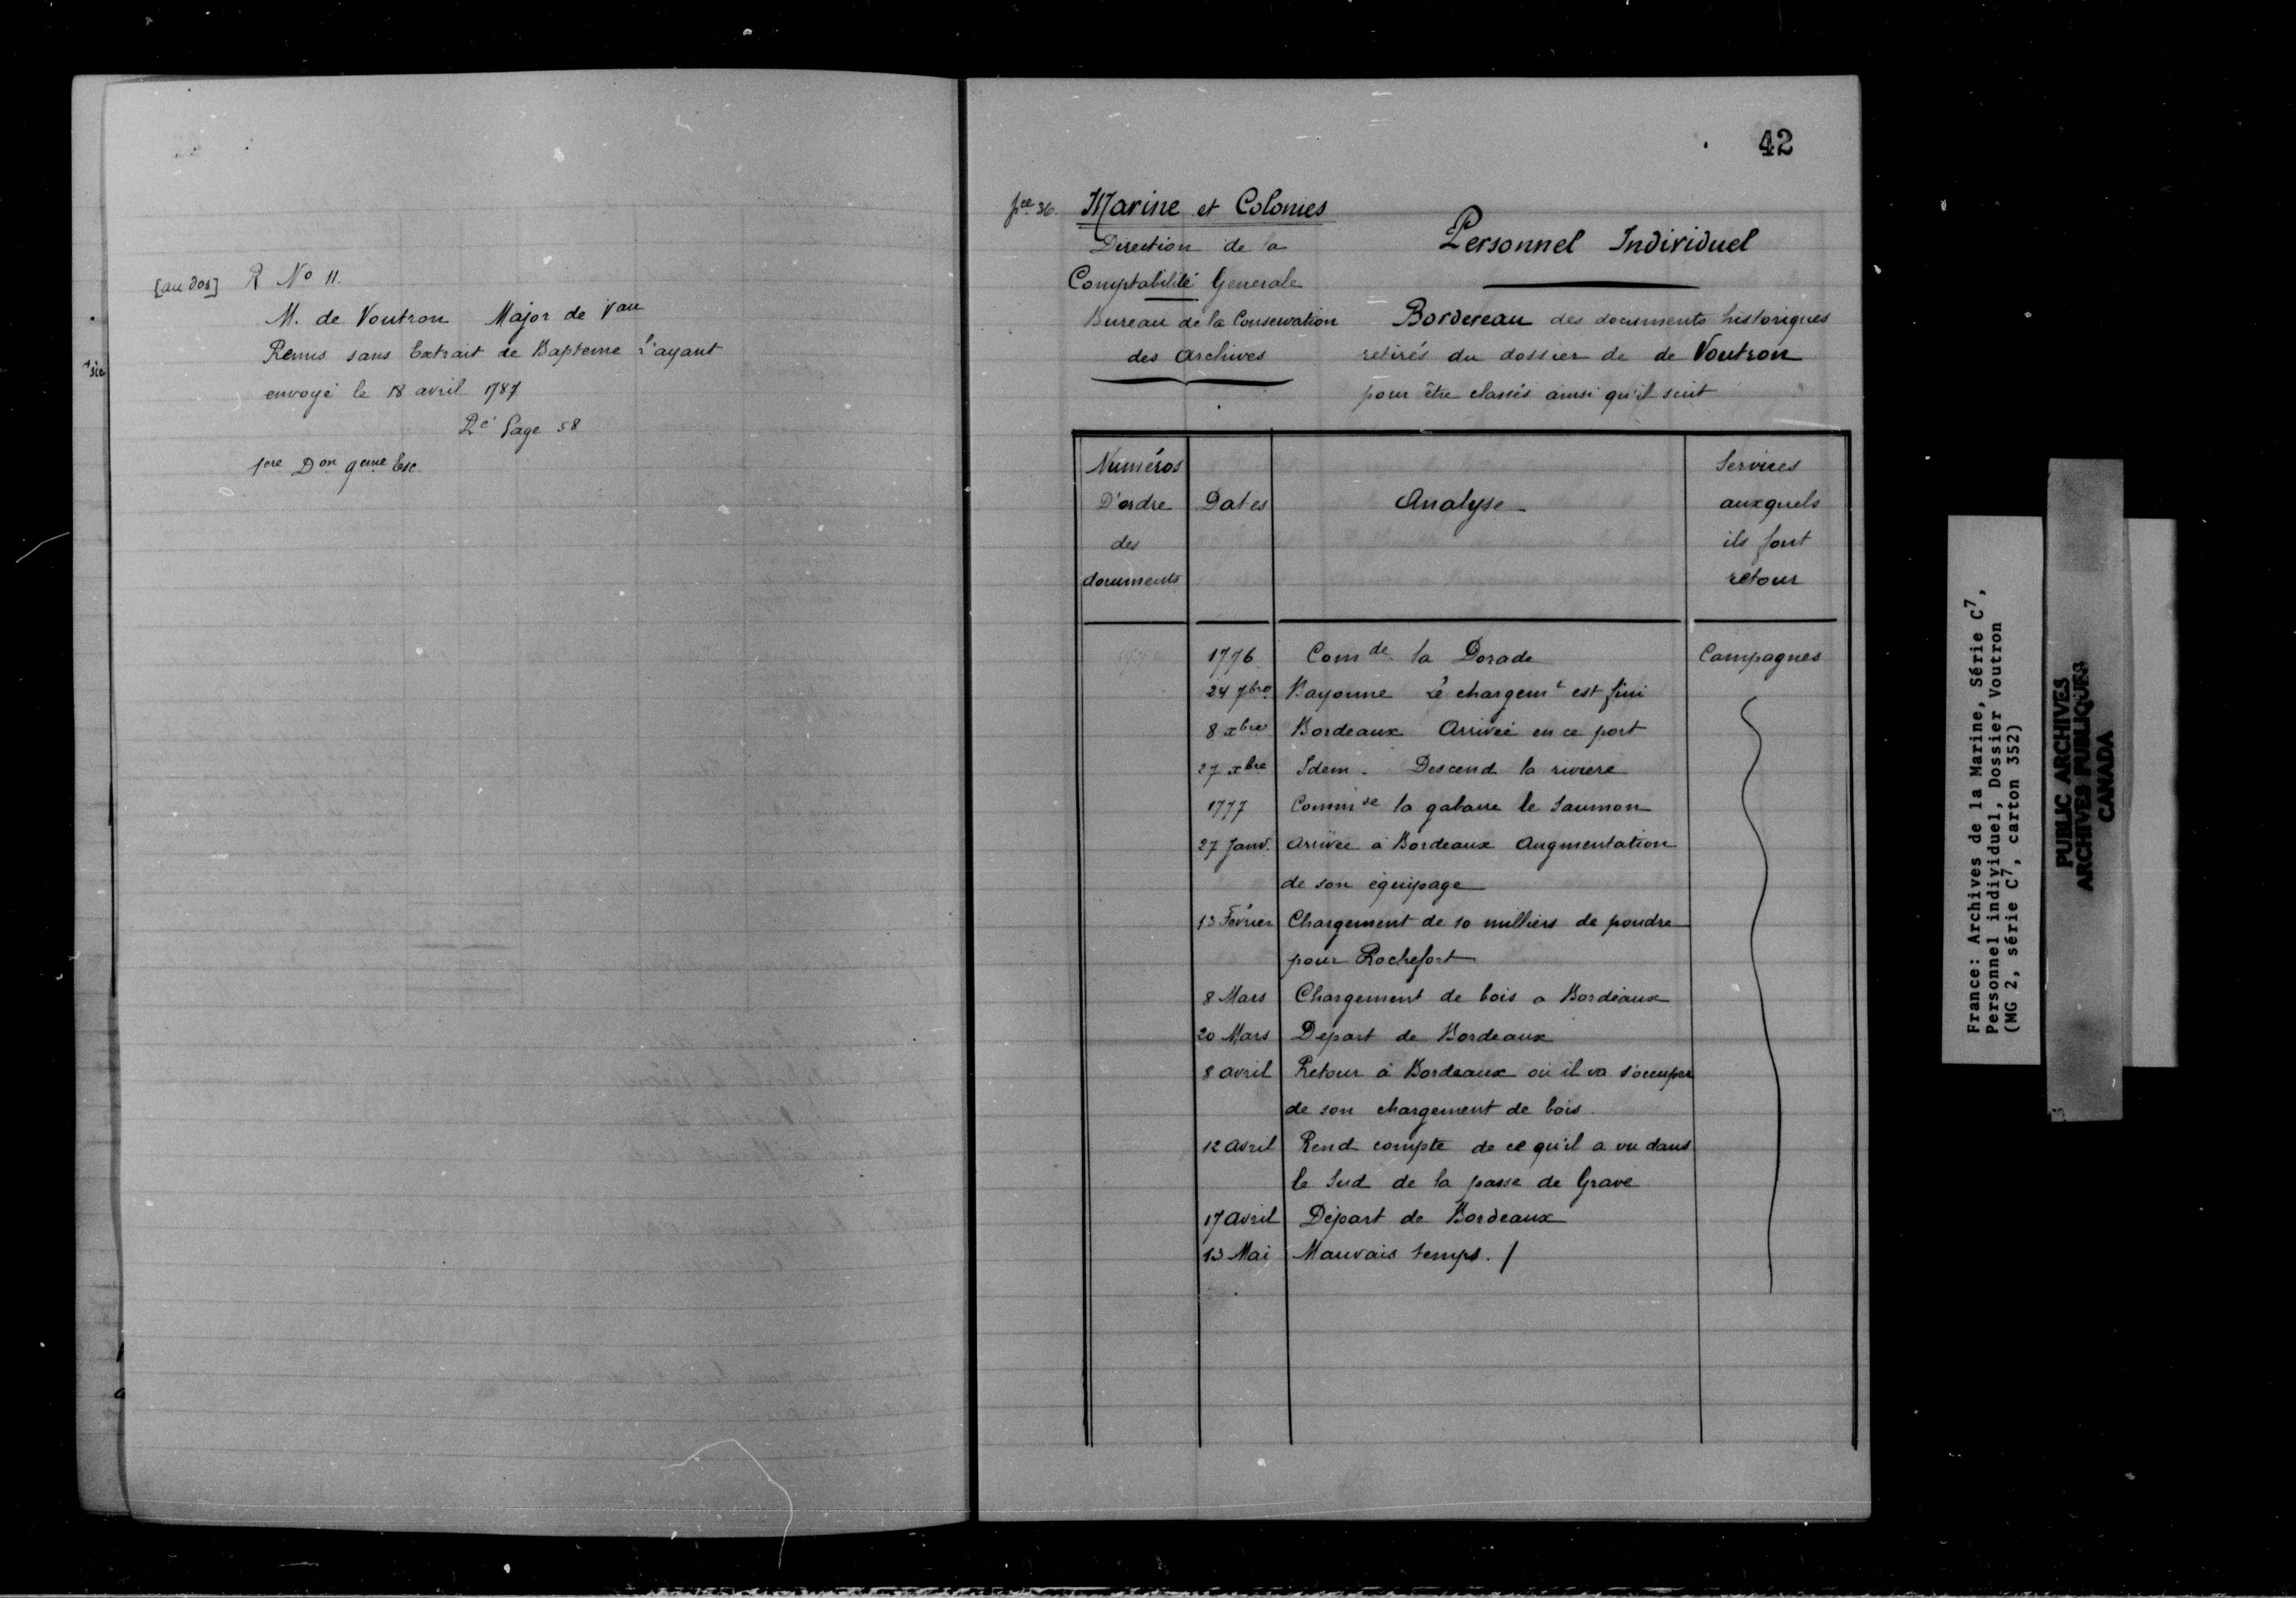 [au dos] R No 11.
M. de Voutron Major de Vau
Remis sans Extrait de Bapteme l'ayant
envoyé le 18 avril 1787
Ré Page 58
1ere Don 9eme Esc.
sic
42
pce 36. Marine et Colonies
Direction de la
Comptabilité Generale
Bureau de la Conservation
des Archives
Personnel Individuel
Bordereau des documents historiques
retirés du dossier de de Voutron
pour être classés ainsi qu'il suit
Numéros D'ordre des documents
Dates
Analyse
Services auxquels ils font retour
1776 Comde la Dorade Campagnes
24 7bre Bayonne Le chargemt est fini
8 xbre Bordeaux Arrivée en ce port
27 xbre Idem. Descend la riviere
1777 Commde la gabare le Saumon
27 Janv. Arrivée à Bordeaux Augmentation
de son équipage
13 Février Chargement de 10 milliers de poudre
pour Rochefort
8 Mars Chargement de bois a Bordeaux
20 Mars Départ de Bordeaux
8 avril Retour à Bordeaux où il va s'occuper
de son chargement de bois.
12 avril Rend compte de ce qu'il a vu dans
le Sud de la passe de Grave
17 avril Départ de Bordeaux
13 Mai Mauvais temps. /
France: Archives de la Marine, Série C7,
Personnel individuel, Dossier Voutron
(MG 2, série C7, carton 352)
PUBLIC ARCHIVES
ARCHIVES PUBLIQUES
CANADA